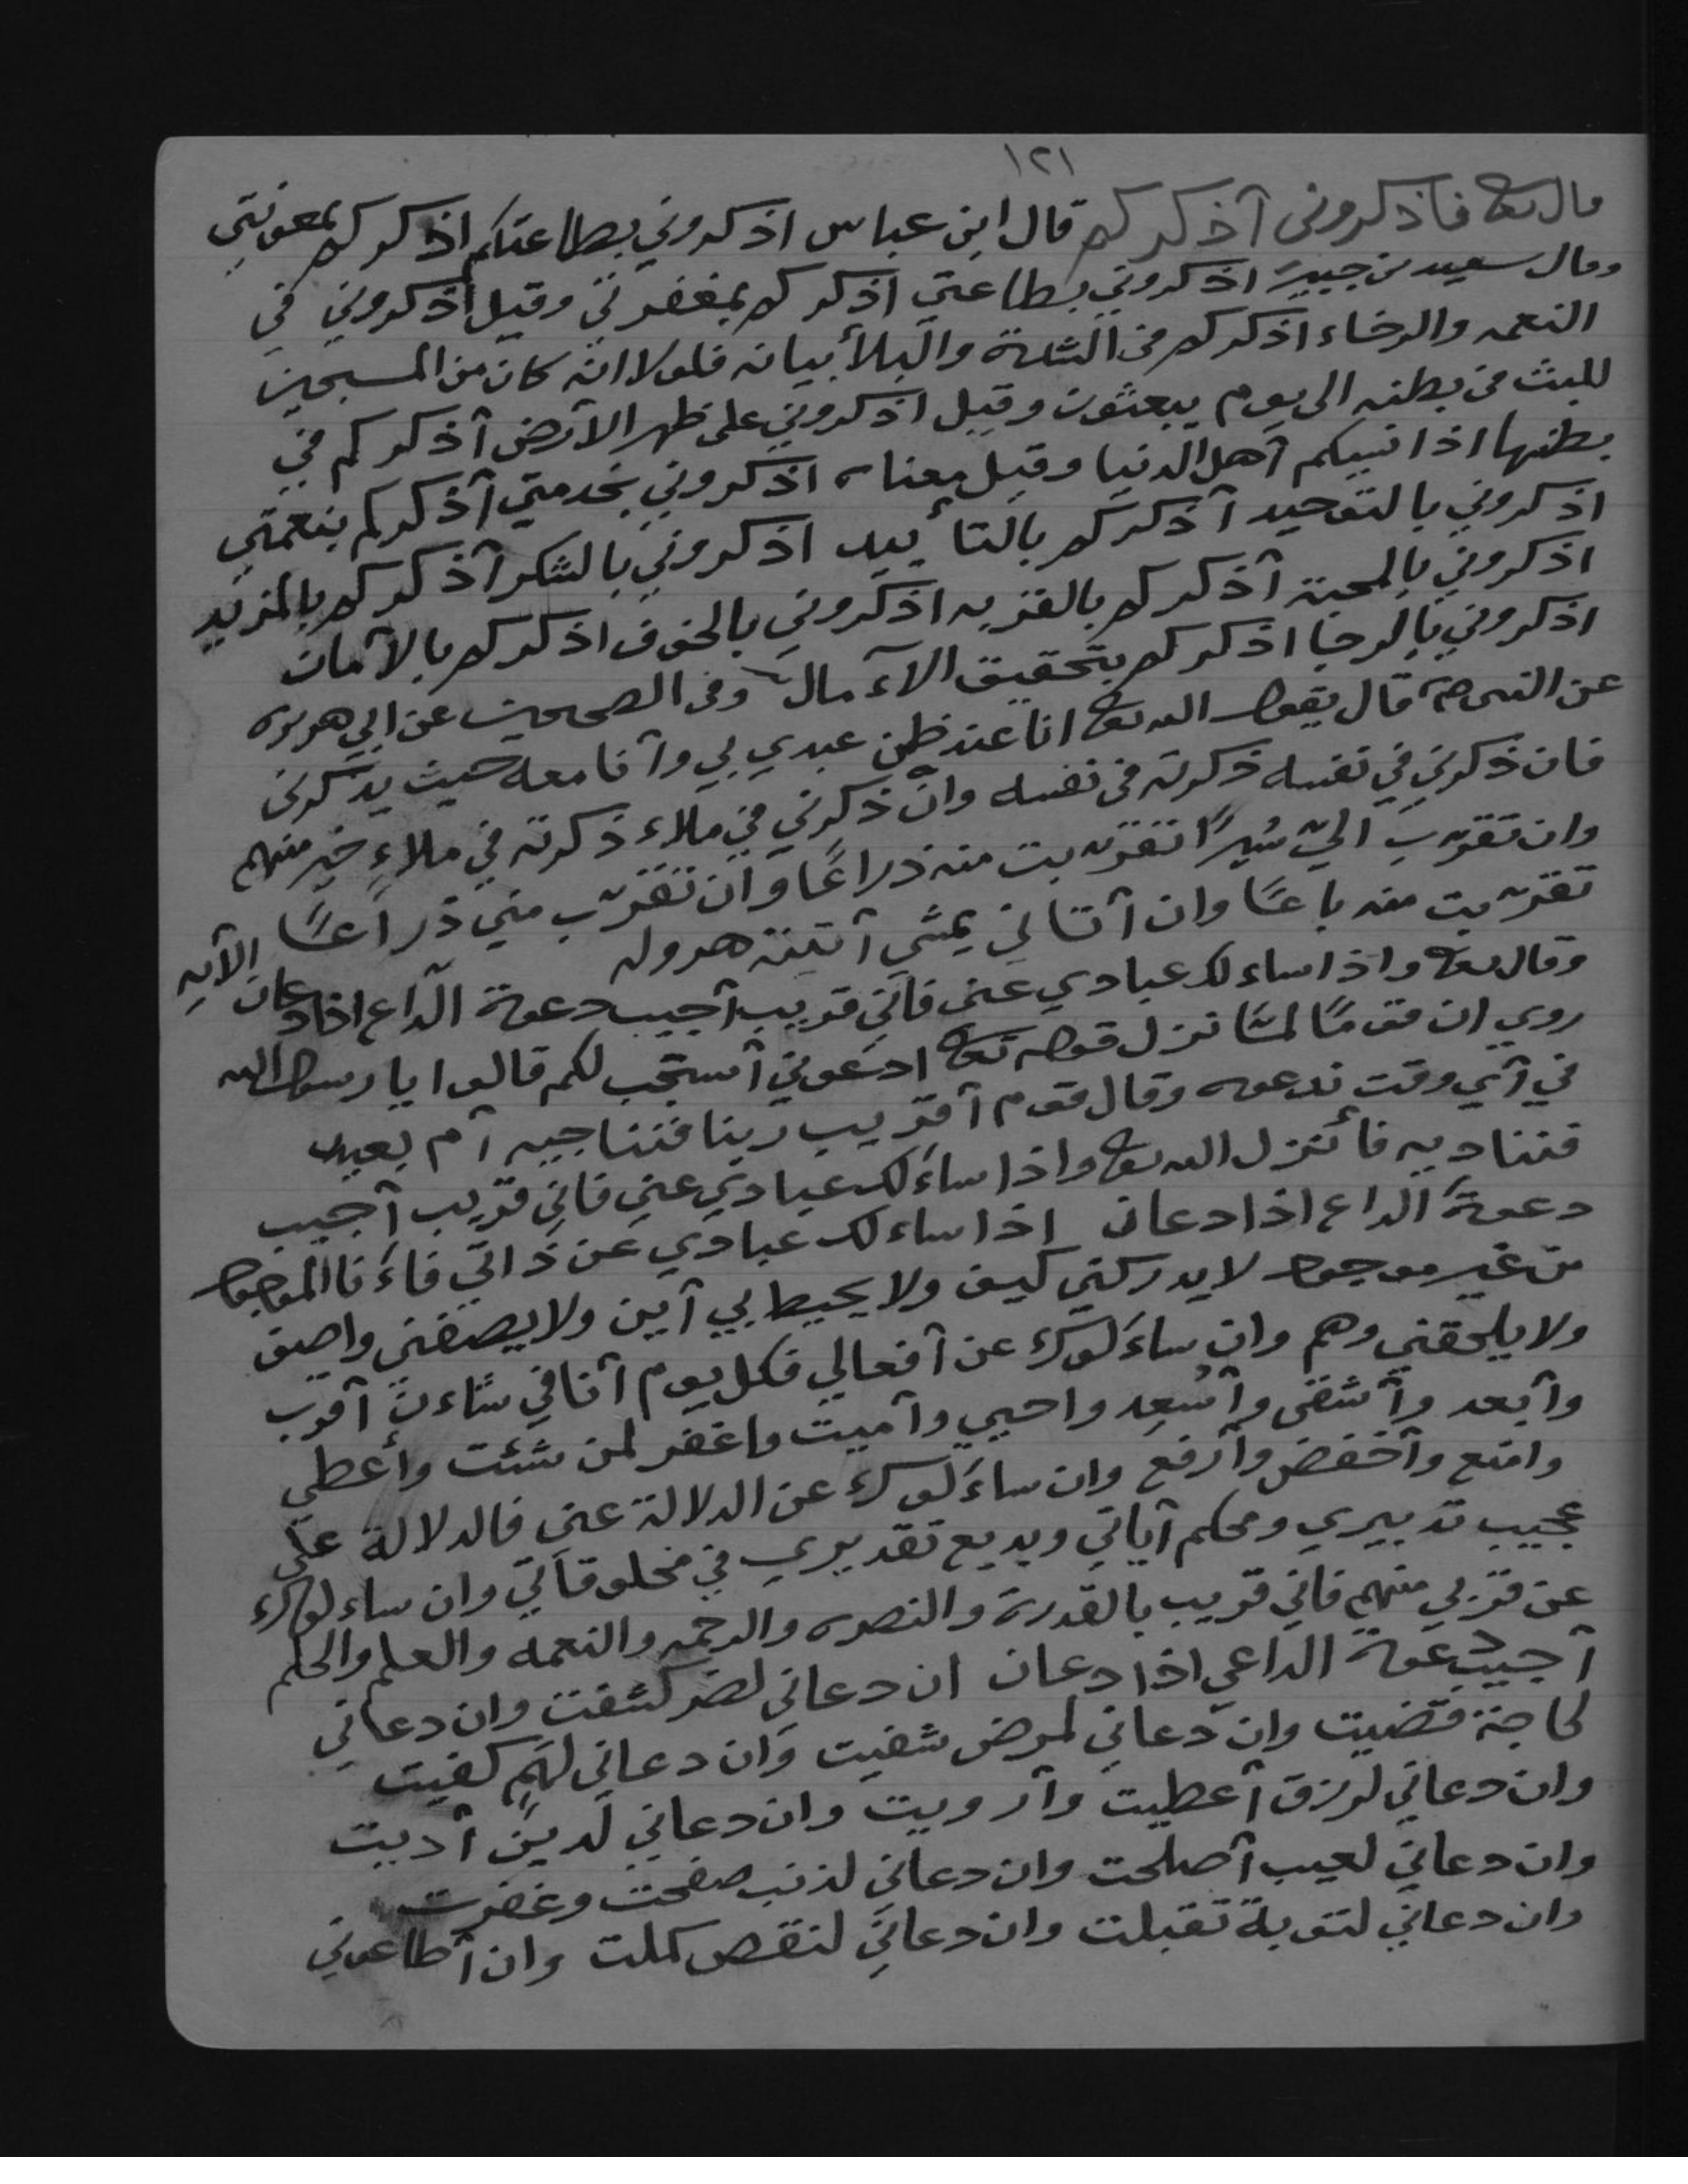 ١٢١
قال تع فاذكروني آذكركم قال ابن عباس اذكروني بطاعتكم اذكركم بمعونتي
وقال سعيد بن جبير اذكروني بطاعتي اذكركم بمغفرتي وقيل اذكروني في
النعمه والرخاء اذكركم في الشدة والبلأ بيانه فلولا انه كان من المسبحين
للبث في بطنه الى يوم يبعثون وقيل اذكروني على ظهر الآرض آذكركم في
بطنها اذا نسيكم آهل الدنيا وقيل معناه اذكروني بخدمتي آذكركم بنعمتي
اذكروني بالتوحيد آذكركم بالتأييد اذكروني بالشكر آذكركم بالمزيد
اذكروني بالمحبة آذكركم بالقربه اذكروني بالخوف اذكركم بالآمان
اذكروني بالرجا اذكركم بتحقيق الآمال وفي الصحيحين عن ابي هريره
عن النبي صم قال يقول الله تع انا عند ظن عبدي بي وآنا معه حيث يذكرني
فان ذكرني في نفسه ذكرته في نفسه وان ذكرني في ملاء ذكرته في ملاءٍ خير منهم
وان تقرّب اليّ شبرًا تقرّبت منه ذراعًا وان تقرّب مني ذراعًا
تقرّبت منه باعًا وان آتاني يمشي آتيته هروله
وقال تع واذا ساءلك عبادي عني فاني قريب آجيب دعوة الداع اذا دعان الآيه
روي ان قومًا لمّا نزل قوله تع ادعوني آستجب لكم قالوا يا رسول الله
في آي وقت ندعوه وقال قوم آقريب ربنا فنناجيه آم بعيد
فنناديه فأنزل الله تع واذا ساءلك عبادي عني فاني قريب آجيب
دعوة الداع اذا دعان اذا ساءلك عبادي عن ذاتي فاءنا الموجود
من غير موجود لا يدركني كيف ولا يحيط بي آين ولا يصفني واصف
ولا يلحقني وهم وان ساءلوك عن آفعالي فكل يوم آنا في شاءن آقرب
وآبعد وآشقى وآسعد واحيي وآميت واغفر لمن شئت وأعطي
وامنع وآخفض وآرفع وان ساءلوك عن الدلالة عني فالدلالة على
عجيب تدبيري ومحكم آياتي وبديع تقديري في مخلوقاتي وان ساءلوك
عن قربي منهم فاني قريب بالقدرة والنصره والرحمه والنعمه والعلم والحلم
آجيب دعوة الداعي اذا دعان ان دعاني لضر كشفت وان دعاني
لحاجة قضيت وان دعاني لمرض شفيت وان دعاني لهمٍ كفيت
وان دعاني لرزق آعطيت وآرويت وان دعاني لدين آديت
وان دعاني لعيب آصلحت وان دعاني لذنب صفحت وغفرت
وان دعاني لتوبة تقبلت وان دعاني لنقص كملت وان آطاعوني